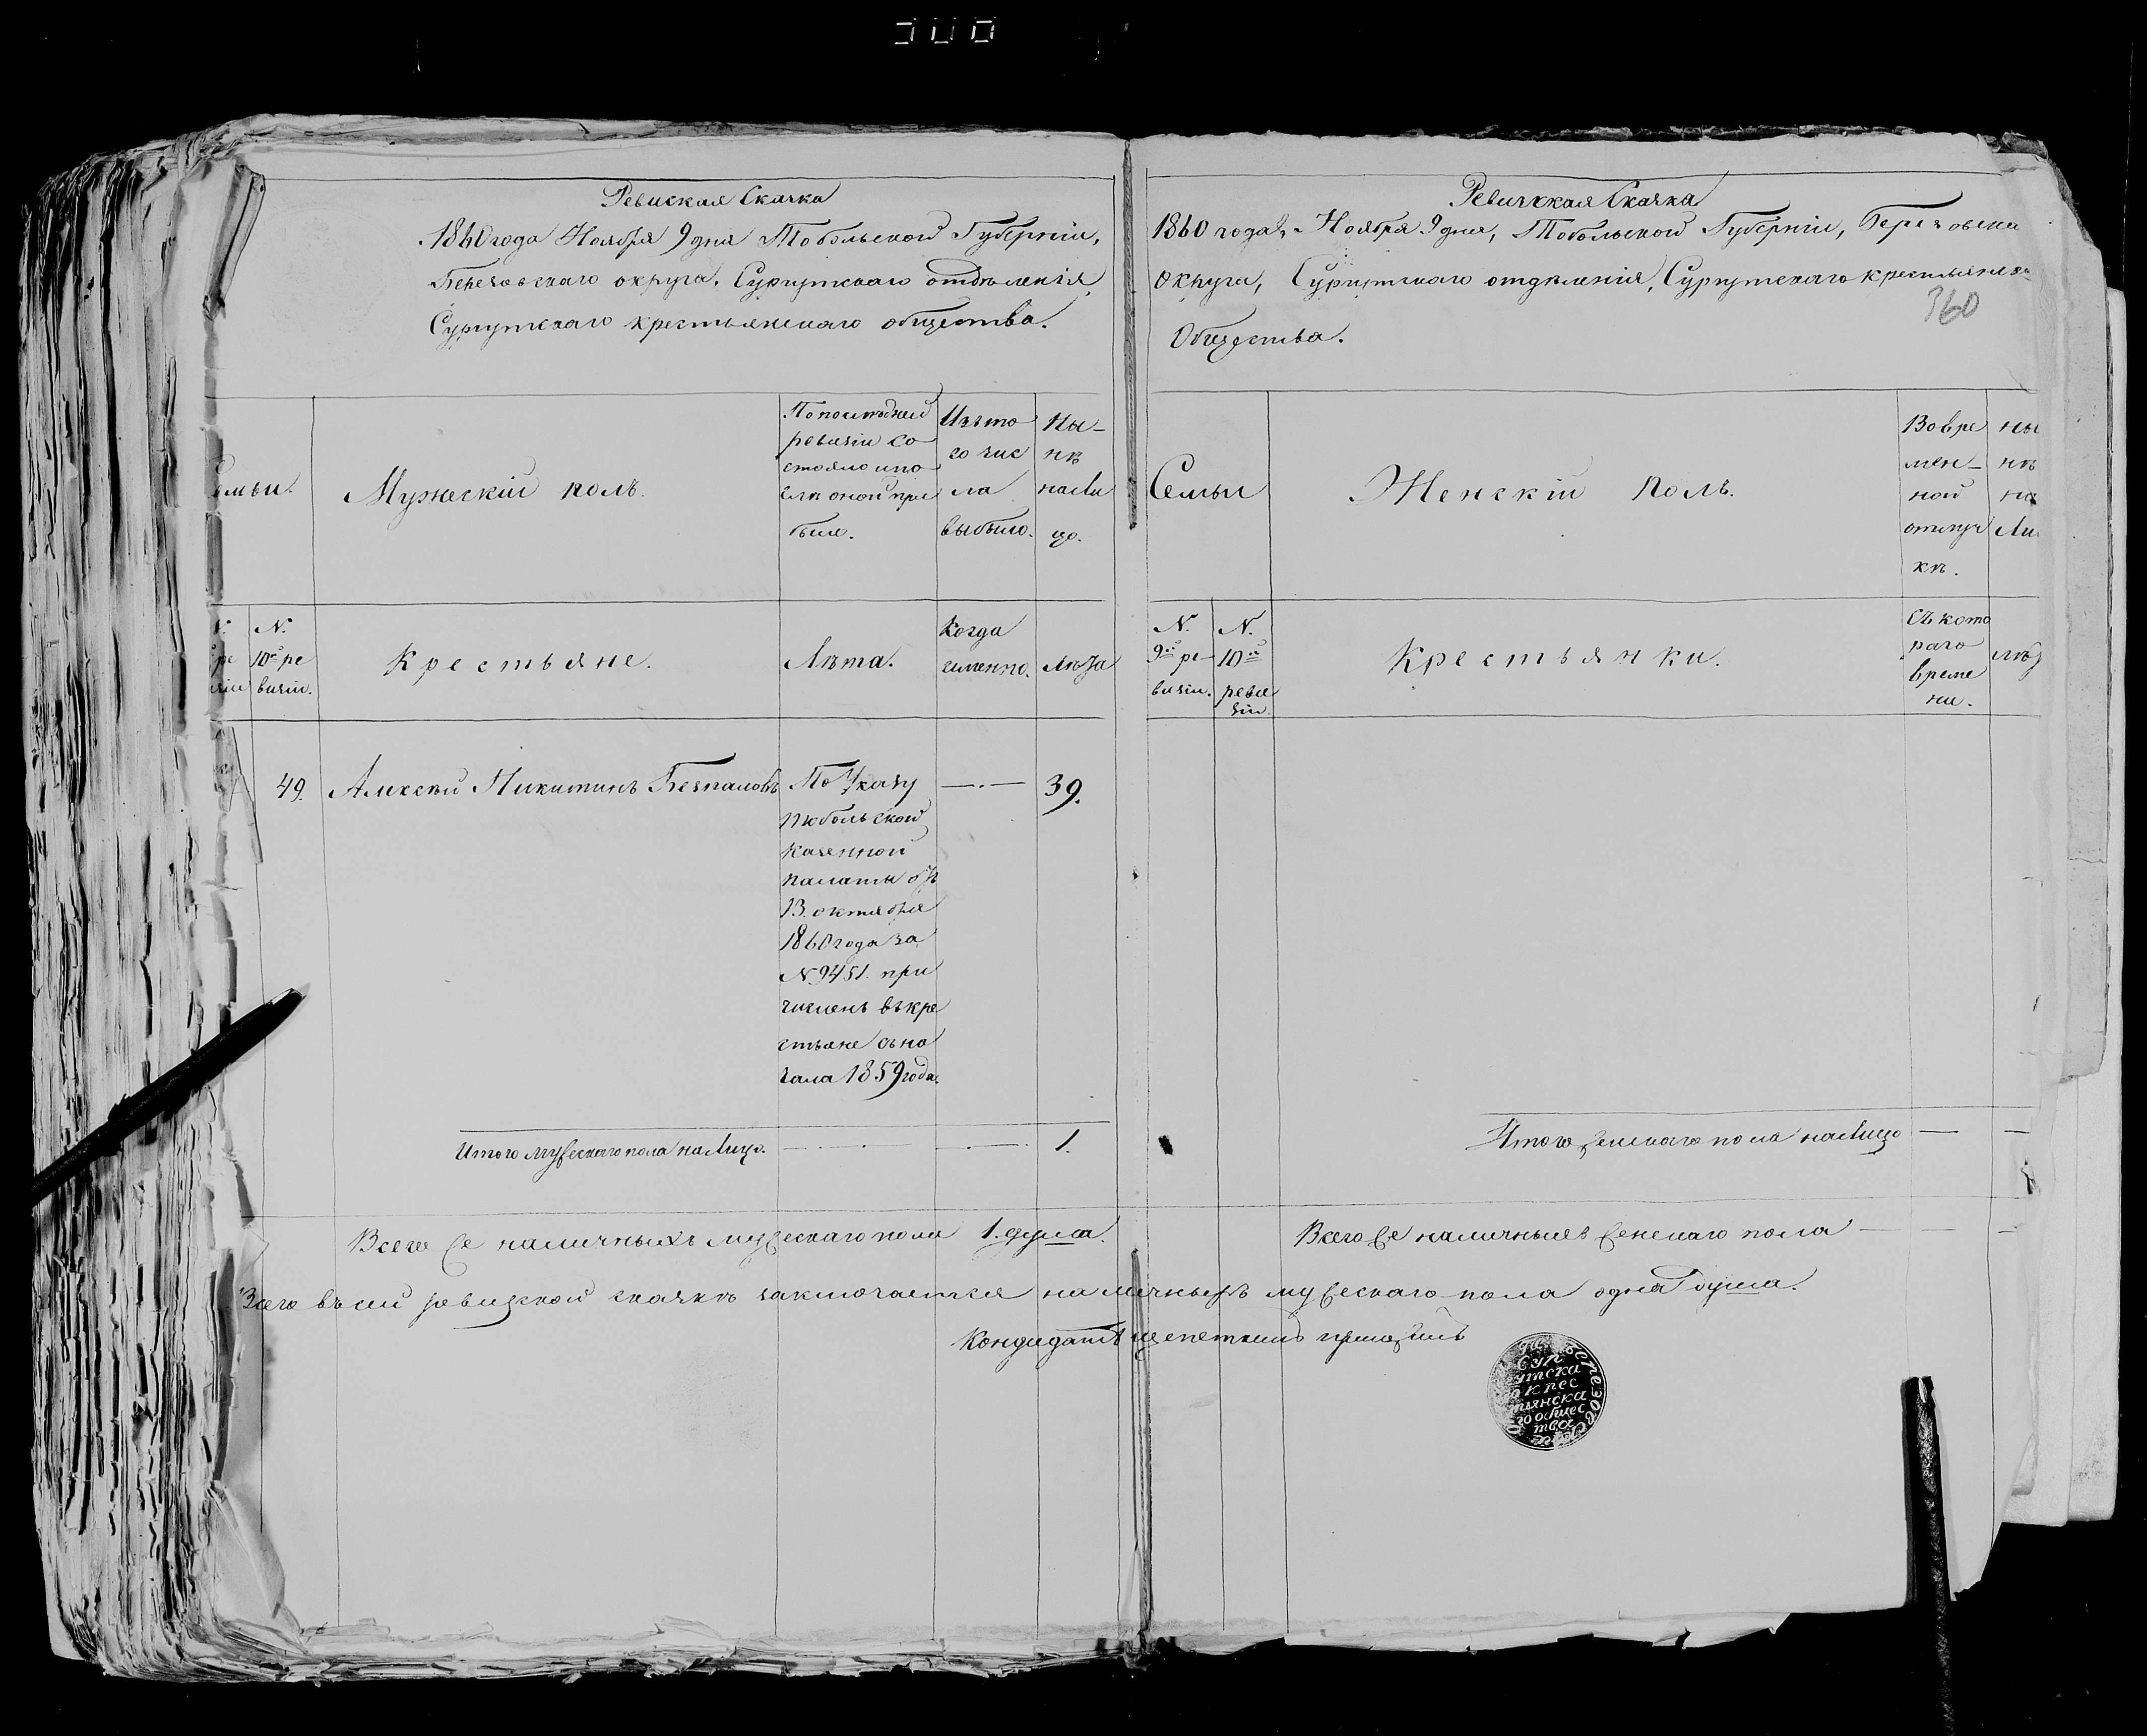 Ревиская Сказка
1860 года Ноября 9 дня Тобольской Губерніи,
Березовскаго округа, Сургутскаго отдѣленія,
Сургутскаго крестьянскаго общества.
емьи.
Мужескій полъ.
По послѣдней
ревизіи со
стояло и по
слѣ оной при
было.
Изъ то
го чис
ла
выбыло.
Ны-
нѣ
нали
цо.
N.
ре
зіи
N.
10й ре
визіи.
Крестьяне.
Лѣта.
Когда
именно.
Лѣта
49.
Алексѣй Никитинъ Безпаловъ
По Указу
Тобольской
Казенной
палаты отъ
13. октября
1860 года за
N 9451. при
численъ въ кре
стьяне съ на
чала 1859 года.
39.
Итого мужескаго пола налицо.
1.
Всего же наличныхъ мужескаго пола 1. душа.
Ревизская Сказка
1860 года, Ноября 9 дня, Тобольской Губерніи, Березовска
округа, Сургутскаго отдѣленія, Сургутскаго крестьянска
360
Общества.
Семьи
Женскій Полъ.
Во вре
мен-
ной
отлуч
кѣ.
ны
нѣ
на
Ли
N.
9й ре-
визіи.
N.
10й
реви
зіи.
Крестьянки.
Съ кото
раго
време
ни.
лѣт
Итого женскаго пола налицо
Всего же наличныхъ женскаго пола
Всего въ сей ревизской сказкѣ заключается наличныхъ мужескаго пола одна душа.
Кондидатъ
Сург
утска
го крес
тьянска
го общес
тва